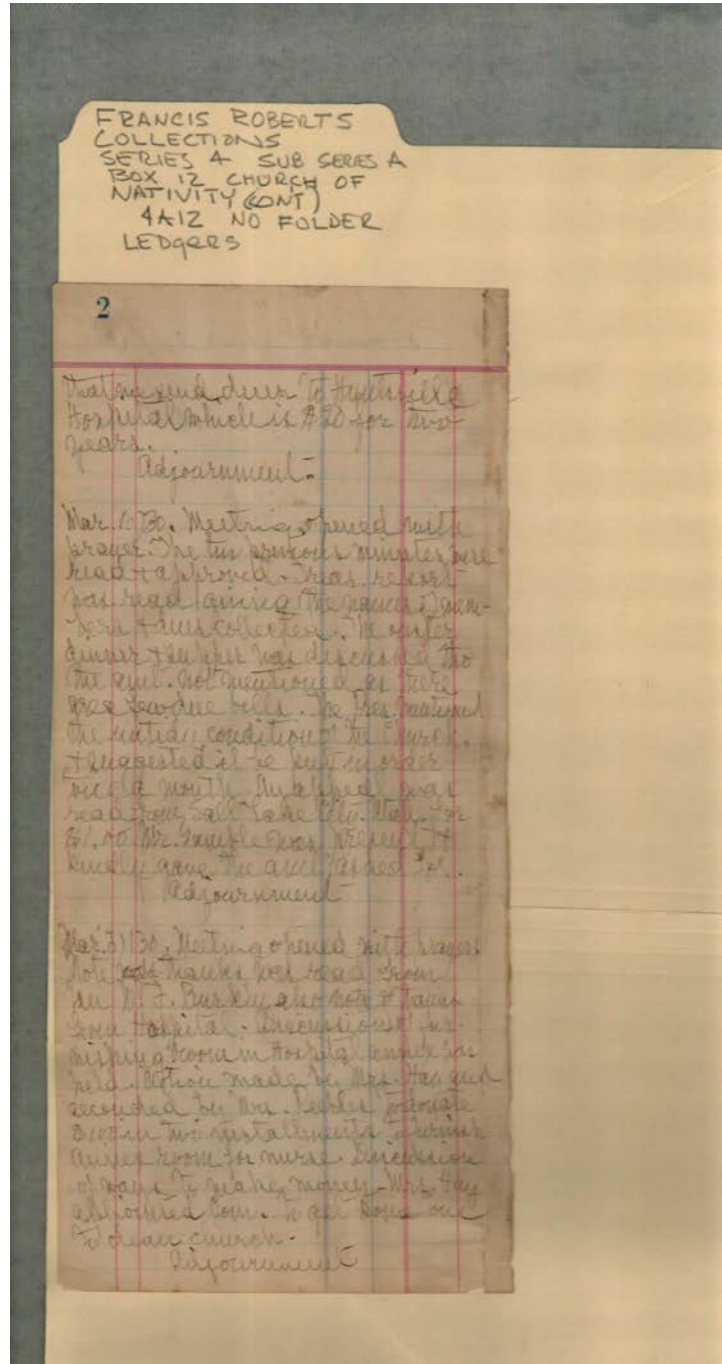 FRANCIS ROBERTS
COLLECTIONS
SERIES 4 SUB SERIES A
BOX 12 CHURCH OF
NATIVITY (CONT)
4A12 NO FOLDER
LEDgERS
2
that we send dues to Huntsville
Hospital which is $20 for two
years.
Adjournment-
Mar. 10 '30. Meeting opened with
prayer. The two previous minutes were
read + approved. Treas. report
was read giving the names of mem-
bers + dues collected. The
dinner + supper was discussed tho
the not mentioned as there
are few due bills. The Pres. mentioned
the condition of the Church.
+ suggested it be put in order
a month. An appeal was
read from Salt Lake City, Utah. for
$1.00 Mr. Gamble was present +
kindly gave the amt. asked for.
Adjournment-
Mar. 31 '30. Meeting opened with prayer.
Note of thanks was read from
also note of thanks
from Hospital. Discussion of fur-
nishing room in Hospital annex was
held. Motion made by Mrs. Hay and
seconded by Mrs. to donate
$100 in two installments to furnish
annex room for nurse. Discussion
of ways to make money. Mrs. Hay
appointed Com. to get some one
to clean church.
Adjournment-